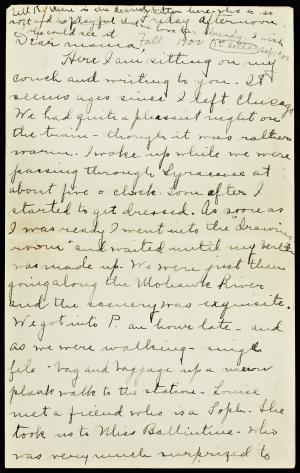 Tell R. there is one dear kitten here, who is so
soft and so playful that I
love her dearly. I wish
you could see it
Friday afternoon.
Fall 1900 (1st letter Sept 1900)
Dear mama:
Here I am sitting on my
couch and writing to you. It
seems ages since I left Chicago.
We had quite a pleasant night on
the train - though it was rather
warm. I woke up while we were
passing through Syracuse at
about five o-clock. Soon after I
started to get dressed. As soon as
I was ready I went into the drawing
room" and waited until my berth
was made up. We were just then
going along the Mohawk River
and the scenery was exquisite.
We got into P. an hour late - and
as we were walking - single
file - bag and baggage up a narrow
plank walk to the station - Louise
met a friend who is a Soph. She
took us to Miss Ballintine - who
was very much surprized to